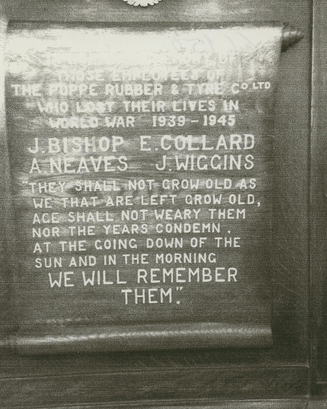 THOSE EMPLOYEES OF
THE POPPE RUBBER & TYRE Co LTD
WHO LOST THEIR LIVES IN
WORLD WAR 1939-1945
J. BISHOP E. COLLARD
A. NEAVES J. WIGGINS
"THEY SHALL NOT GROW OLD AS
WE THAT ARE LEFT GROW OLD,
AGE SHALL NOT WEARY THEM
NOR THE YEARS CONDEMN.
AT THE GOING DOWN OF THE
SUN AND IN THE MORNING
WE WILL REMEMBER
THEM."